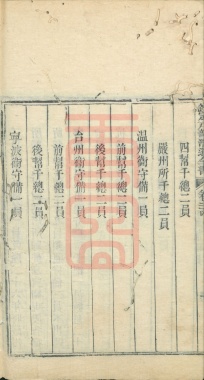 四幫千總二員
嚴州所千總二員
溫州衛守備一員
前幫千總二員
後幫千總二員
台州衛守備一員
前幫千總二員
後幫千總二員
寧波衛守備一員